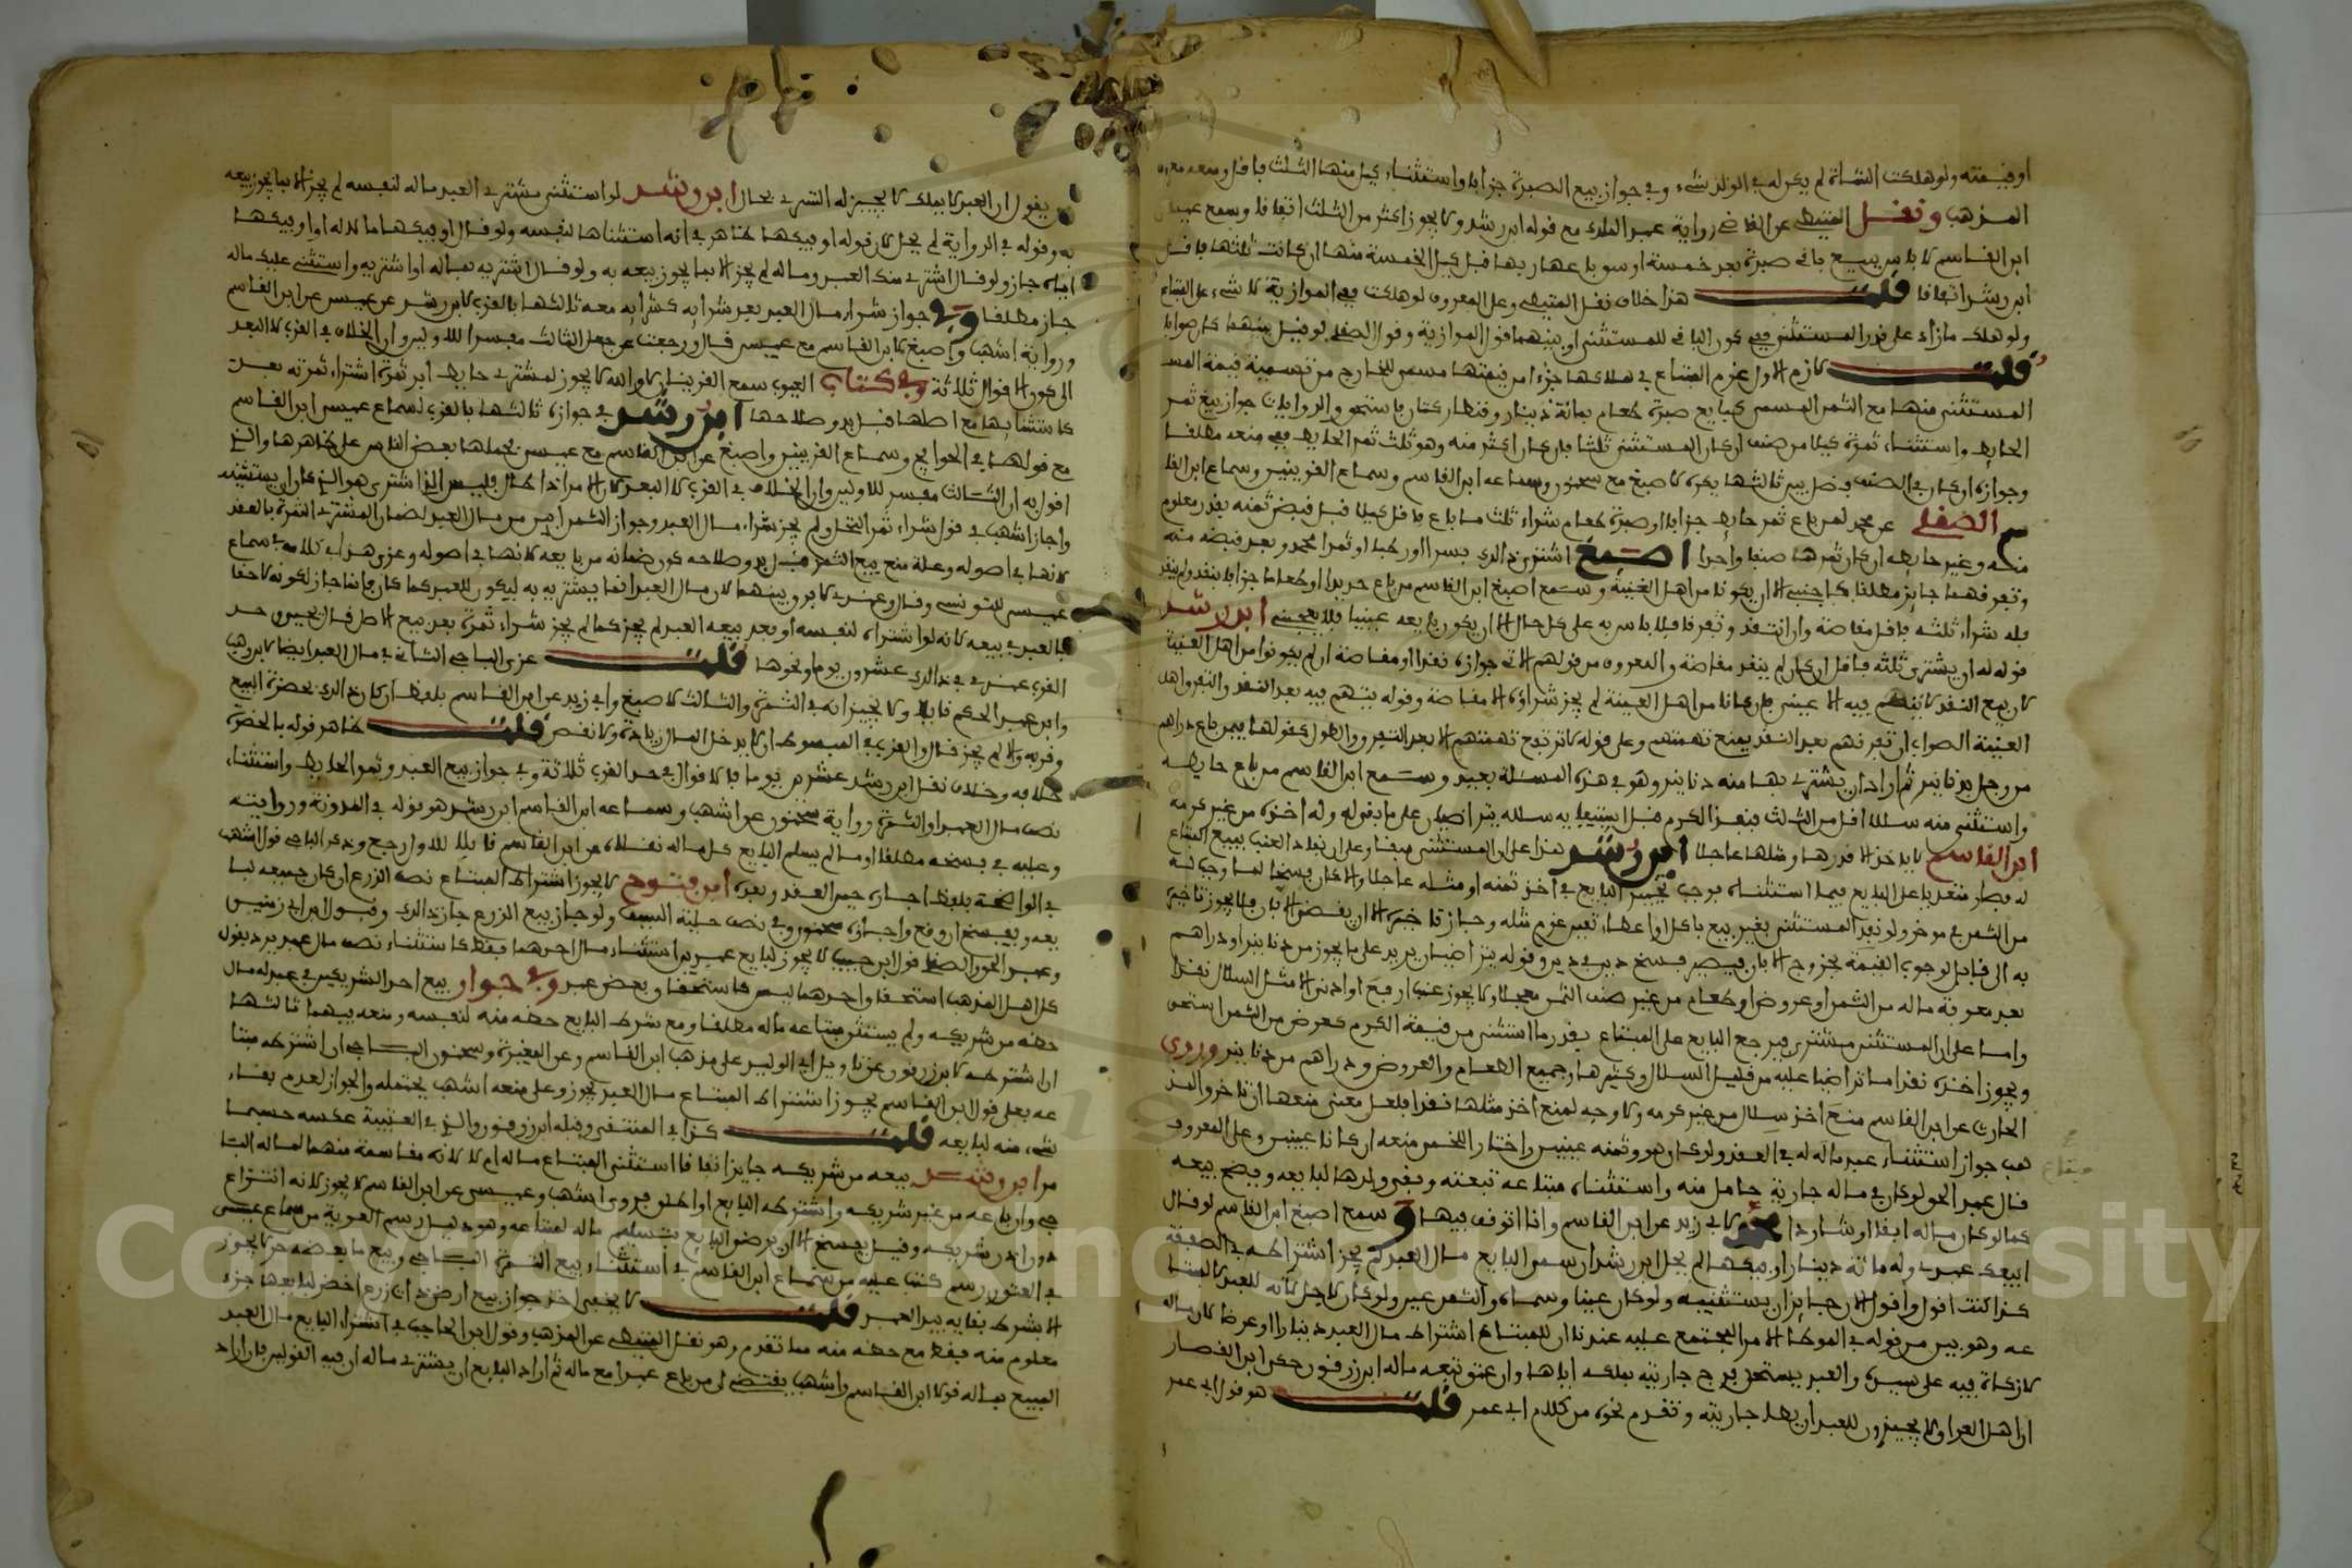 او قيمته ولو هلكت الشاة لم يكن له في الولد شيء وفي جواز بيع الصبرة جزافا واستثناء كيل منها الثلث فاقل ومنعه
المذهب ونقل المتيطي عن القاضي رواية عبد الملك مع قوله ابن رشد ولا يجوز اكثر من الثلث اتفاقا وسمع عيسى
ابن القاسم لا باس ببيع باقي صبرة بعد خمسة اوسق باعها ربها قبل كيل الخمسة منها ان كانت ثلثها فاقل
ابن رشد اتفاقا قلت هذا خلاف نقل المتيطي وعلى المعروف لو هلكت ففي الموازية لا شيء على المبتاع
ولو هلك ما زاد على قدر المستثنى ففي كون الباقي للمستثني او بينهما قول الموازية وقول الصقلي لو قيل بينهما كان صوابا
قلت لازم الاول غرم المبتاع في هلاكها جزءا من قيمتها مسمى للخارج من تسمية قيمة
المستثنى منها مع الثمن المسمى كبايع صبرة طعام بمائة دينار وقنطار كتان فاستحق والروايات جواز بيع ثمر
الحايط واستثناء ثمرة كيلا من صنف ان كان المستثنى ثلثا فان كان اكثر منه وهو ثلث ثمر الحايط ففي منعه مطلقا
وجوازه ان كان في الصنف فضل بين ثالثها يكره لاصبغ مع سحنون وسماعه ابن القاسم وسماع القرينين وسماع ابن القا
سم الصقلي عن محمد لمن باع ثمر حايط جزافا او صبرة طعام شراء ثلث ما باع فاقل كيلا قبل قبض ثمنه بقدر معلوم
منه وغير حايطه ان كان ثمرها صنفا واحدا اصبغ اشترى ذلك بسرا او رطبا او ثمرا محمد وبعد قبضه منه
وتفرقهما جايز مطلقا كاجنبي الا ان يكونا من اهل العينة وسمع اصبغ ابن القاسم من باع حديدا او طعاما جزافا بنقد ولم ينقد
فله شراء ثلثه فاقل مقاصة وان انتقد وتفرقا فلا باس به على كل حال الا ان يكون بايعه عينيا فلا يعجبني ابن رشد
قوله له ان يشتري ثلثه فاقل ان كان لم ينقد مقاصة والمعروف من قولهم الاتي جوازه نقدا او مقاصة ان لم يكونوا من اهل العينة
لان بيع النقد لا يتهم فيه الا عيني فان كانا من اهل العينة لم يجز شراؤه الا مقاصة وقوله يتهم فيه بعد النقد والتفرق اهل
العينة الصواب ان تفرقهم بعد النقد يمنع تهمتهم وعلى قوله لا ترتفع تهمتهم الا بعد التفرق والطول كقولها فيمن باع دراهم
من رجل بدنانير ثم اراد ان يشتري بها منه دنانير وهو في هذه المسئلة بعيد وسمع ابن القاسم من باع حايطه
واستثنى منه سلالا اقل من الثلث فنفذ الكرم قبل استيفايه سلاله يتراضيان على ما بقي له وله اخذه من غير كرمه
ابن القاسم فايد خذ الا قدرها ومثلها عاجلا ابن رشد هذا على ان المستثنى مبقا وعلى ان نفاد العنب ببيع المبتاع
له فصار متعديا على البايع فيما استثناه فوجب تخيير البايع في اخذ ثمنه او مثله عاجلا والا كان فسخا لما وجب له
من الثمن في موخر ولو نفد المستثنى بغير بيع باكل او اعطاء تعين غرم مثله وجاز تاخيره الا ان يفضي الابان فلا يجوز تاخيره
به الى قابل لوجوب القيمة بخروج الابان فيصير فسخ دين في دين وقوله يتراضيان يريد على ما يجوز من دنانير او دراهم
بعد معرفة ماله من الثمن او عروض او طعام من غير صنف الثمر معجلا ولا يجوز عنب ارفع او ادنى الا مثل السلال نقدا
واما على ان المستثنى مشترى فيرجع البايع على المبتاع بقدر ما استثنى من قيمة الكرم كعرض من الثمن استحق
ويجوز اخذه نقدا ما تراضيا عليه من قليل السلال وكثيرها وجميع الطعام والعروض ودراهم من دنانير وروى
الحارث عن ابن القاسم منع اخذ سلال من غير كرمه ولا وجه لمنع اخذ مثلها نقدا فلعل معنى منعها ان تاخر والمذ
هب جواز استثناء عبد ماله له في العقد ولو كان هو وثمنه عينين واختار اللخمي منعه ان كانا عينين وعلى المعروف
قال عبد الحق لو كان في ماله جارية حامل منه واستثناه مبتاعه تبعته وبقي ولدها لبايعه ويفسخ بيعه
كما لو كان ماله ابقا او شاردا لابي زيد عن ابن القاسم وانا اتوقف فيها وسمع اصبغ ابن القاسم لو قال
ابيعك عبدي وله مائة دينار اوفيكها لم يحل ابن رشد ان سمى البايع مال العبد لم يجز اشتراطه في الصفقة
كذا كنت اقول واقول الان جايز ان يستثنيه ولو كان عينا وسماه والثمن عين ولو كان لاجل لانه للعبد لا للمبتا
عه وهو بين من قوله في الموطا الامر المجتمع عليه عندنا ان للمبتاع اشتراط مال العبد دينارا او عرضا لان ماله
لا زكاة فيه على سيده والعبد يستحل فرج جاريته بملكه اياها وان عتق تبعه ماله ابن زرقون حكى ابن القصار
ان اهل العراق لا يجيزون للعبد ان يطا جاريته وتقدم نحوه من كلام ابي عمر قلت هو قول ابي عمر
يقول ان العبد لا يملك لا يجيز له التسري بحال ابن رشد لو استثنى مشتري العبد ماله لنفسه لم يجز الا بما يجوز بيعه
به وقوله في الرواية لم يحل لان قوله اوفيكها ظاهر في انه استثناها لنفسه ولو قال اوفيكها مالا له او اوفيكها
اياه جاز ولو قال اشتري منك العبد وماله لم يجز الا بما يجوز بيعه به ولو قال اشتريه بماله او اشتريه واستثني عليك ماله
جاز مطلقا وفي جواز شراء مال العبد بعد شرايه كشرايه معه ثالثها بالقرب لابن رشد عن عيسى عن ابن القاسم
ورواية اشهب واصبغ لابن القاسم مع عيسى قال ورجعت عن جعل الثالث مفسرا للاولين وان الخلاف في القرب لا البعد
الى كون الاقوال ثلاثة وفي كتاب العيوب سمع القرينان لا والله لا يجوز لمشتري حايط ابر ثمره اشتراء ثمرته بعد
لاستثنايها مع اصلها قبل بدو صلاحها ابن رشد في جوازه ثالثها بالقرب لسماع عيسى ابن القاسم
مع قولها في الجوايح وسماع القرينين واصبغ عن ابن القاسم مع عيسى بحملها بعض الناس على ظاهرها والذي
اقول به ان الثالث مفسر للاولين وان الخلاف في القرب لا البعد لان الامر اذا طال فليس الذي اشترى هو الذي كان له ان يستثنيه
واجاز اشهب في قول شراء ثمر النخل ولم يجز شراء مال العبد وجواز الثمر ابين من مال العبد لضمان المشتري الثمرة بالعقد
لانها في اصوله وعلة منع بيع الثمر قبل بدو صلاحه كون ضمانه من بايعه لانها في اصوله وعزو هذا في كلامه في سماع
عيسى للتونسي وقال وعندي لا فرق بينهما لان مال العبد انما يشتريه به ليكون للعبد كما كان فانما جاز لكونه لاحقا
بالعبد في بيعه لانه لو اشتراه لنفسه او بعد بيعه العبد لم يجز كما لم يجز شراء ثمرة بعد بيع الاصل قال يحيى وحد
القرب عندي في ذلك عشرون يوما ونحوها قلت عزى الباجي الثاني في مال العبد ايضا لابن وهب
وابن عبد الحكم قايلا ولا يجيزانه في الثمرة والثالث لاصبغ وابي زيد عن ابن القاسم بلفظ ان كان ذلك بحضرة البيع
وقربه والا لم يجز قال والقرب في المبسوط ان لا يدخل المال زيادة ولا نقص قلت ظاهر قوله بالحضرة
خلافه وخلاف نقل ابن رشد عشرين يوما فالاقوال في حد القرب ثلاثة وفي جواز بيع العبد وثمر الحايط واستثناء
نصف مال العبد او الثمرة رواية سحنون عن اشهب وسماعه ابن القاسم ابن رشد هو قوله في المدونة وروايته
وعليه في فسخه مطلقا او ما لم يسلم البايع كل ماله نقلاه عن ابن القاسم قايلا للاول رجع وذكر الباجي قول اشهب
في الواضحة بلفظ اجازه حين العقد وبعده ابن فتوح لا يجوز اشتراط المبتاع نصف الزرع ان كان جميعه لبا
يعه ويفسخ ان وقع واجازه سحنون وفي نصف حلية السيف ولو جاز بيع الزرع جاز ذلك وقبول ابن ابي زمنين
وعبد الحق والصقلي قول ابن حبيب لا يجوز لبايع عبدين استثناء مال احدهما فقط كاستثناء نصف مال عبد يرد بقول
كل اهل المذهب استحقا واحدهما ليس كاستحقاق بعض عبد وفي جواز بيع احد الشريكين في عبد له مال
حظه من شريكه ولم يستثن مبتاعه ماله مطلقا ومع شرط البايع حظه منه لنفسه ومنعه فيهما ثالثها
ان اشترطه لابن زرقون عن تاويل ابي الوليد على مذهب ابن القاسم وعن المغيرة وسحنون الباجي ان اشترطه مبتا
عه فعلى قول ابن القاسم يجوز اشتراط المبتاع مال العبد يجوز وعلى منعه اشهب يحتمله والجواز لعدم بقاء
شيء منه لبايعه قلت كذا في المنتقى وقبله ابن زرقون والذي في العتبية عكسه حسبما
مر ابن رشد بيعه من شريكه جايز اتفاقا استثنى المبتاع ماله ام لا لانه مقاسمة منهما لماله البا
جي وان باعه من غير شريكه واشترطه البايع او اطلق فروى اشهب وعيسى عن ابن القاسم لا يجوز لانه انتزاع
دون اذن شريكه وقيل يفسخ الا ان يرضى البايع بتسليم ماله لمبتاعه وهو دليل رسم العرية من سماع عيسى
في العشور رسم كتب عليه من سماع ابن القاسم في استثناء بيع الثمرة الباجي وبيع ما بعضه حر لا يجوز
الا بشرط بقايه بيد العبد قلت لا يخفى اخذ جواز بيع ارض ذات زرع اخضر لبايعها جزء
معلوم منه فيفط مع حظه منه مما تقدم وهو نقل المتيطي عن المذهب وقول ابن الحاجب في اشتراء البايع مال العبد
المبيع بماله قولا ابن القاسم واشهب يقتضي ان من باع عبدا مع ماله ثم اراد البايع ان يشتري ماله ان فيه القولين فان اراد
Copyright © King Saud University